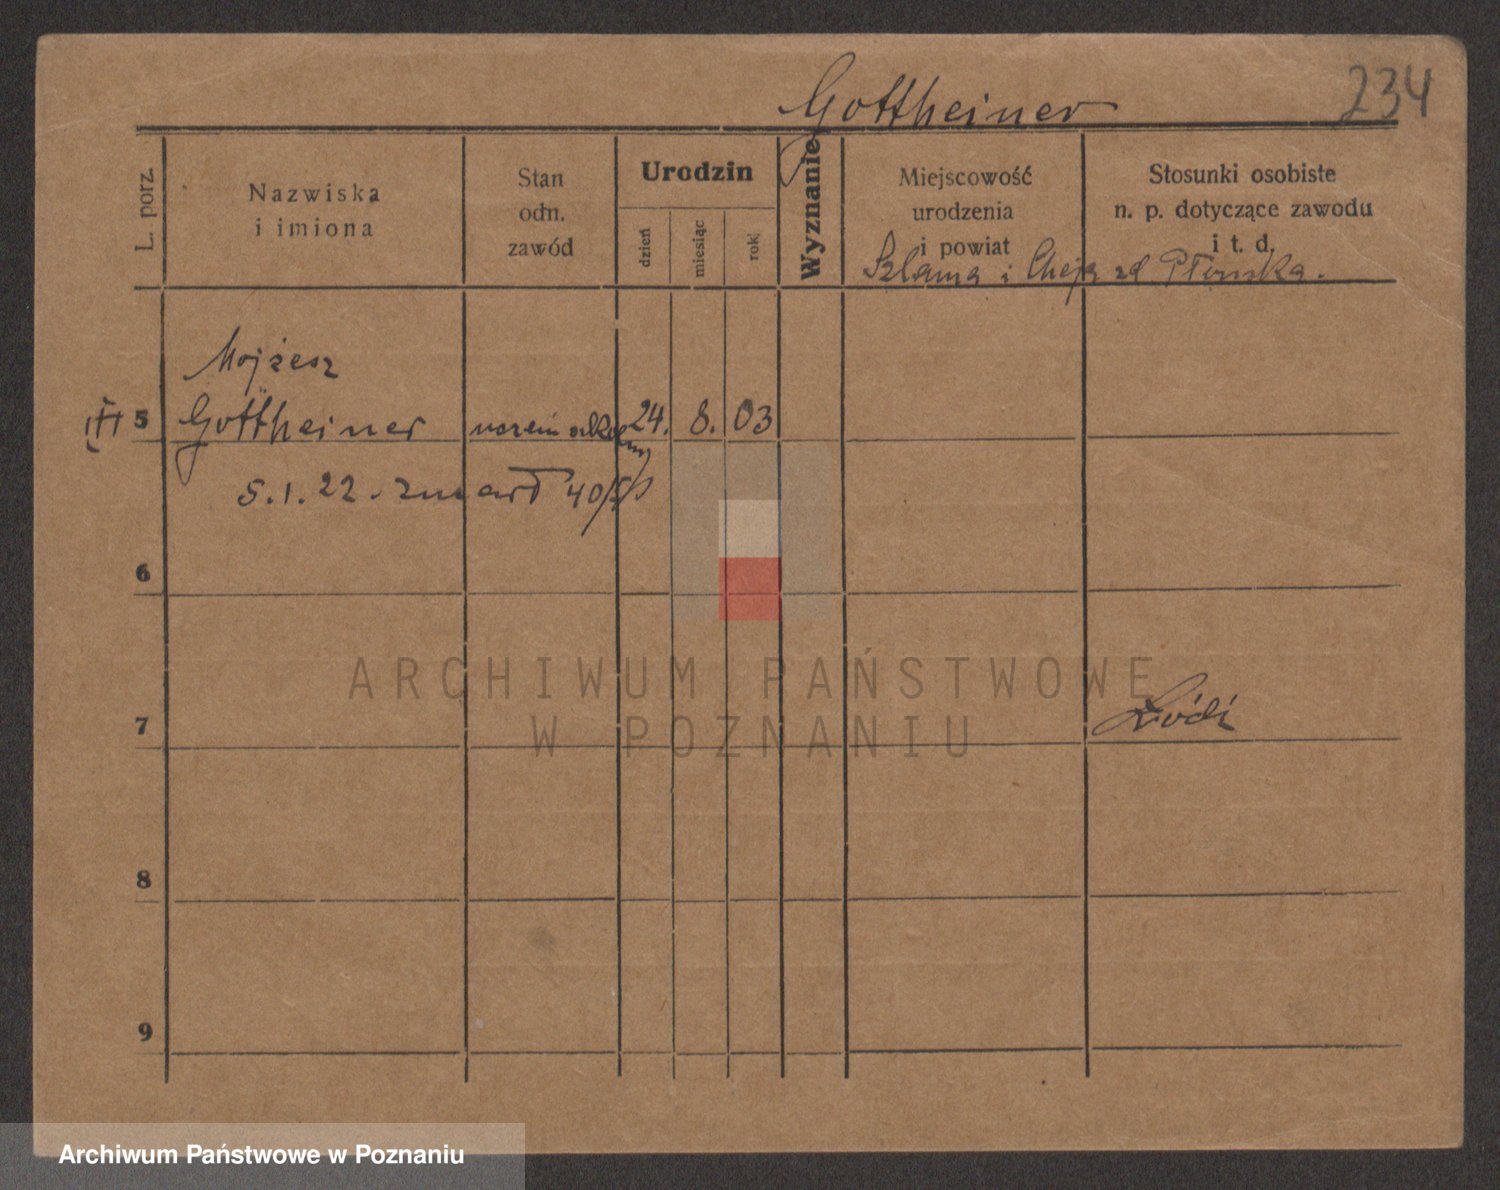 Gottheiner
234
L. porz.
Nazwiska
i imiona
Stan
odn.
zawód
Urodzin
dzień
miesiąc
rok
Wyznanie
Miejscowość
urodzenia
i powiat
Stosunki osobiste
n. p. dotyczące zawodu
i t. d.
Szlama i Chaja zd
Mojżesz
5 Gottheiner 24. 8. 03
5.1.22. zmarł
6
7
8
9
ARCHIWUM PAŃSTWOWE
W POZNANIU
Archiwum Państwowe w Poznaniu